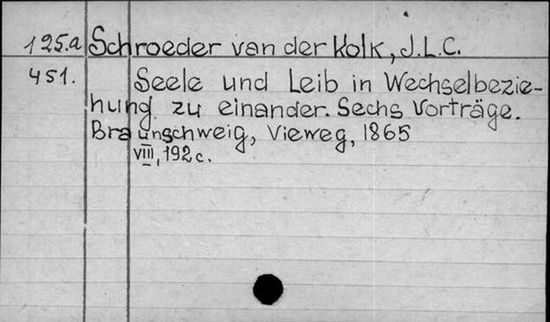 125.a Schroeder van der Kolk, J.L.C.
451. Seele und Leib in Wechselbezie-
hung zu einander. Sechs Vorträge.
Braunschweig, Vieweg, 1865
VIII, 192 c.